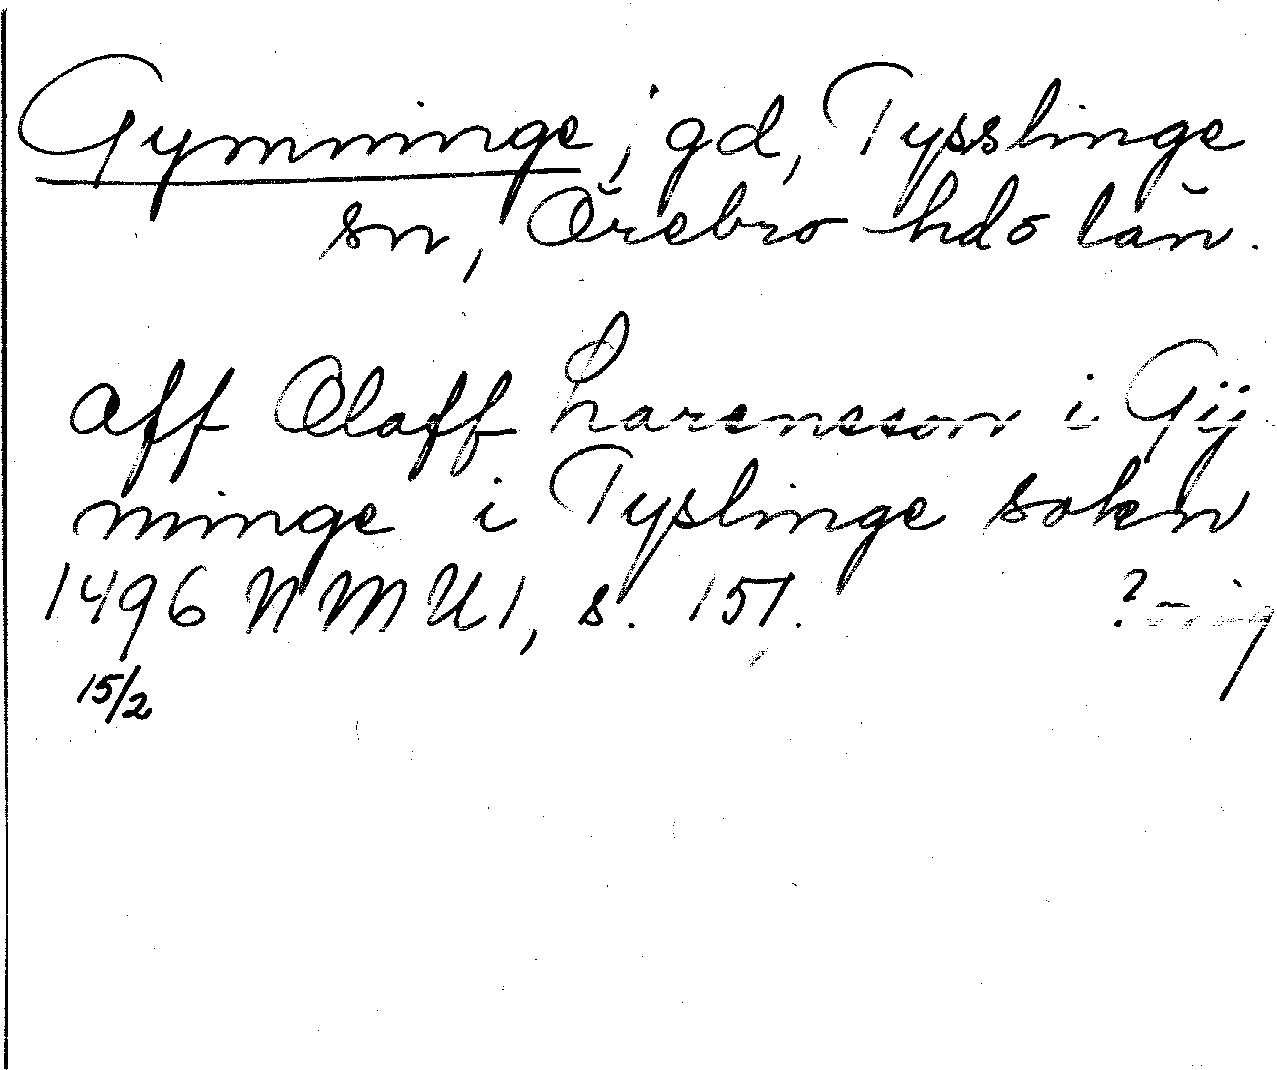 Gymninge, gd, Tysslinge
sn, Örebro hd o län.
aff Olaff Larensson i Gij
minge i Tyslinge soken
1496 NMU 1, s. 151.
15/2